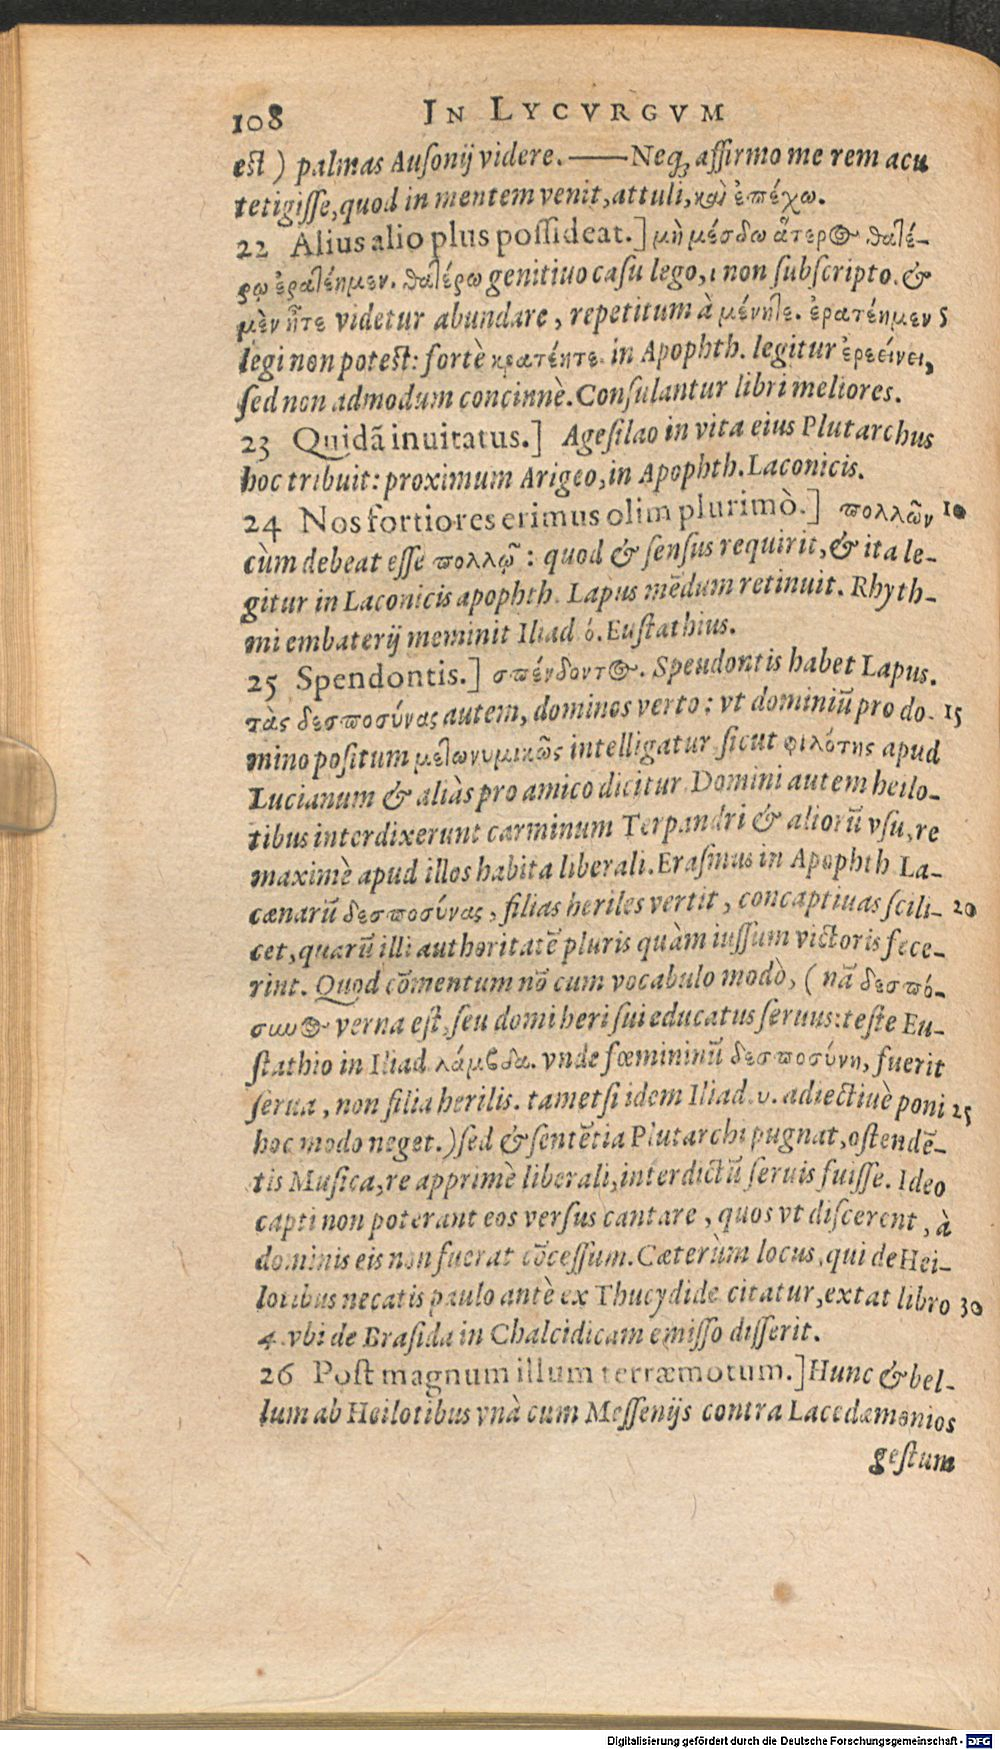 108 IN LYCVRGVM
est ) palmas Ausonij videre. —— Neq; affirmo me rem acu
tetigisse, quod in mentem venit, attuli, καὶ ἐπέχω.
22 Alius alio plus possideat.] μὴ μέσδω ἅτερος θατέ-
ρῳ ἐρατέημεν. θατέρω genitiuo casu lego, ι non subscripto. &
μὲν ἦτε videtur abundare, repetitum à μένητε. ἐρατέημεν 5
legi non potest: fortè κρατέητε. in Apophth. legitur ἐρεείνει,
sed non admodum concinnè. Consulantur libri meliores.
23 Quidã inuitatus.] Agesilao in vita eius Plutarchus
hoc tribuit: proximum Arigeo, in Apophth. Laconicis.
24 Nos fortiores erimus olim plurimò.] πολλῶν 10
cùm debeat esse πολλῷ: quod & sensus requirit, & ita le-
gitur in Laconicis apophth. Lapus mẽdum retinuit. Rhyth-
mi embaterij meminit Iliad ό. Eustathius.
25 Spendontis.] σπένδοντος. Speudontis habet Lapus.
τὰς δεσποσύνας autem, dominos verto: vt dominiũ pro do- 15
mino positum μετωνυμικῶς intelligatur sicut φιλότης apud
Lucianum & aliàs pro amico dicitur. Domini autem heilo-
tibus interdixerunt carminum Terpandri & aliorũ vsu, re
maximè apud illos habita liberali. Erasmus in Apophth La-
cænarũ δεσποσύνας, filias heriles vertit, concaptiuas scili- 20
cet, quarũ illi authoritatẽ pluris quàm iussum victoris fece-
rint. Quod cõmentum nõ cum vocabulo modò, ( nã δεσπό-
συνος verna est, seu domi heri sui educatus seruus: teste Eu-
stathio in Iliad λάμβδα. vnde fœmininũ δεσποσύνη, fuerit
serua, non filia herilis. tametsi idem Iliad. υ. adiectiuè poni 25
hoc modo neget.) sed & sentẽtia Plutarchi pugnat, ostendẽ-
tis Musica, re apprimè liberali, interdictũ seruis fuisse. Ideo
capti non poterant eos versus cantare, quos vt discerent, à
dominis eis non fuerat cõcessum. Cæterùm locus, qui de Hei-
lotibus necatis paulo antè ex Thucydide citatur, extat libro 30
4. vbi de Brasida in Chalcidicam emisso disserit.
26 Post magnum illum terræmotum.] Hunc & bel-
lum ab Heilotibus vnà cum Messenijs contra Lacedæmonios
gestum
Digitalisierung gefördert durch die Deutsche Forschungsgemeinschaft - DFG